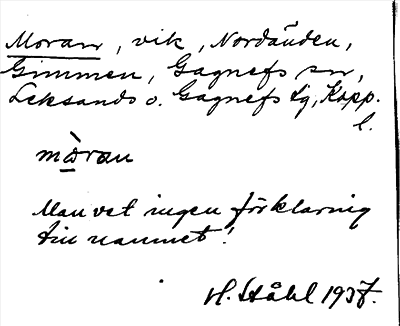 Moran, vik, Nordänden,
Gimmen, Gagnefs sn,
Leksands o. Gagnefs tg, Kopp.
l.
mòran
Man vet ingen förklarnig
till namnet!
H. Ståhl 1937.